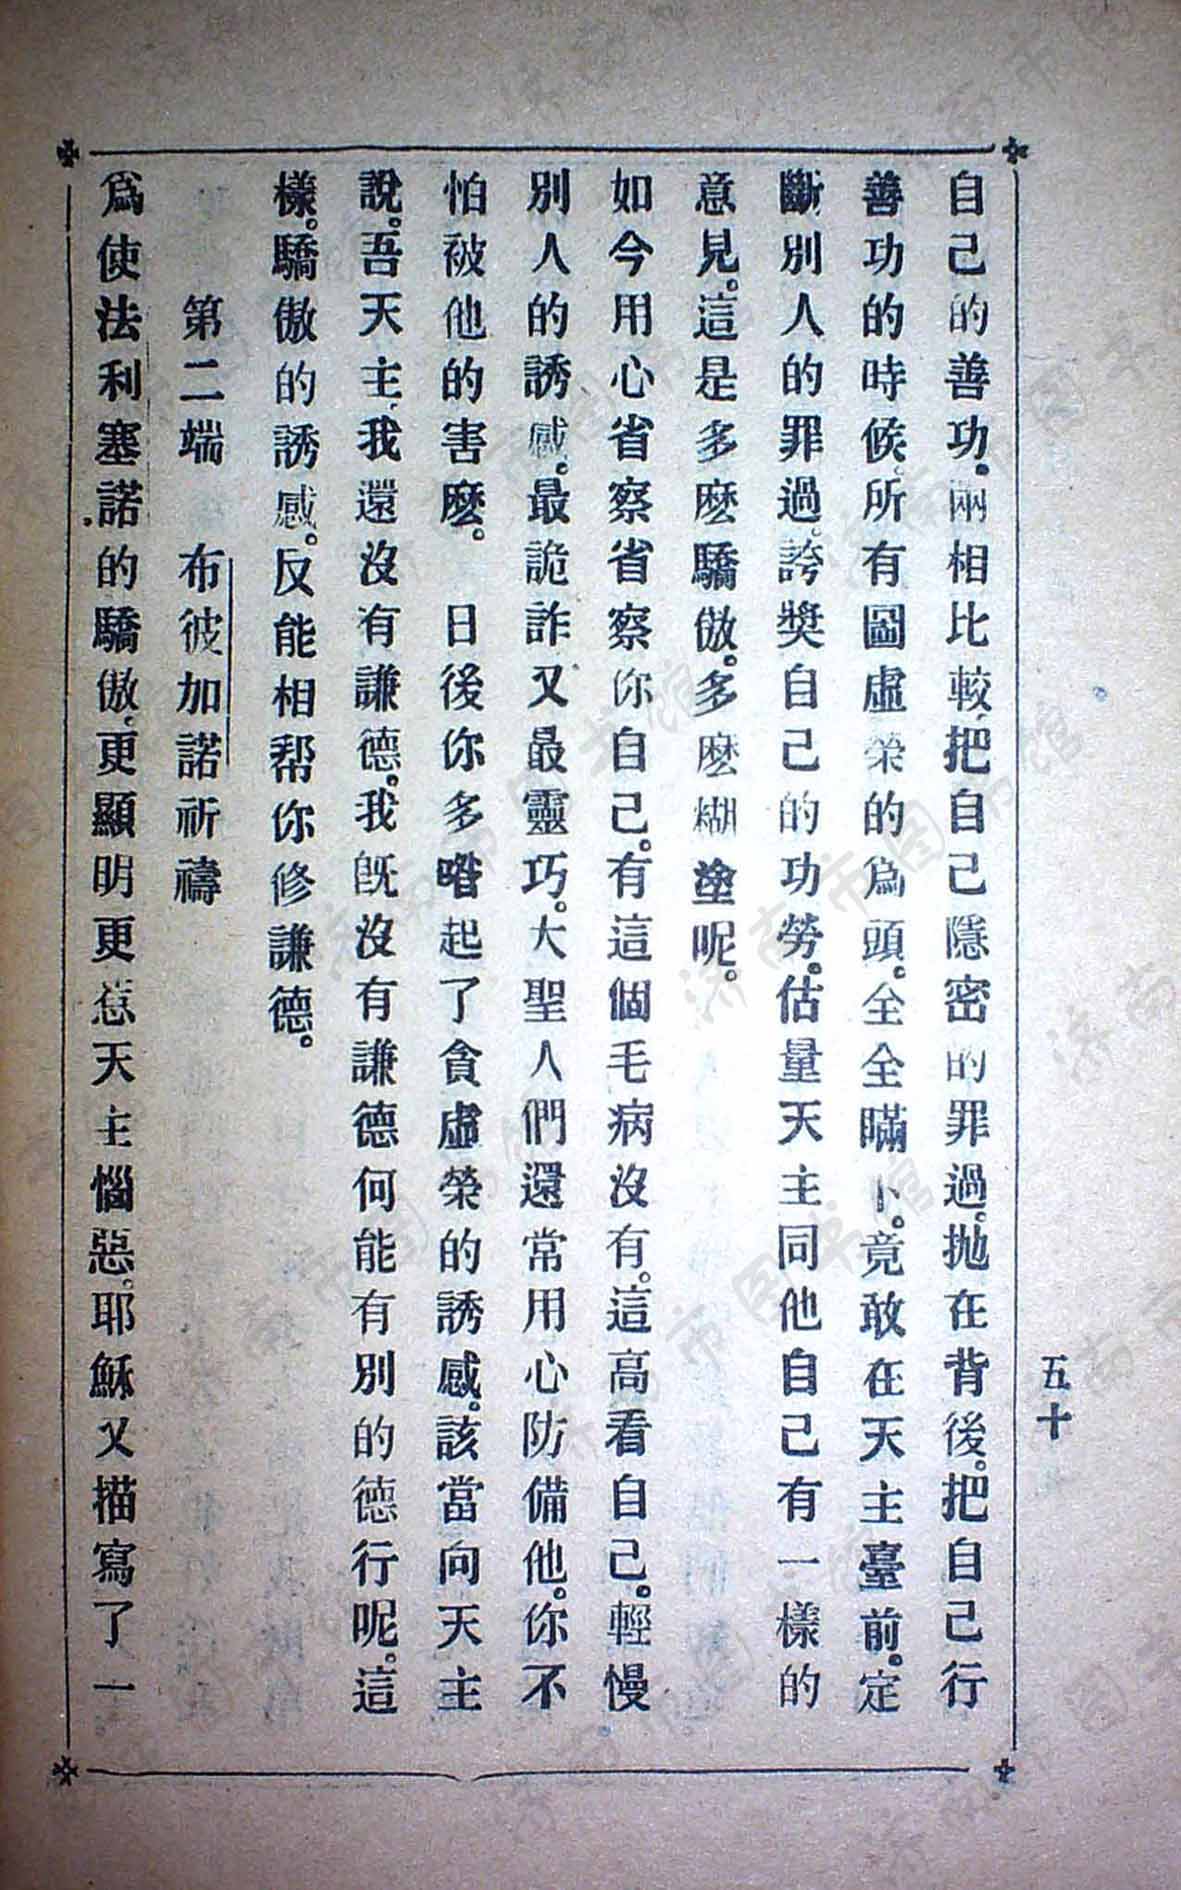 五十
自己的善功。兩相比較、把自己隱密的罪過。拋在背後。把自己行
善功的時候、所有圖虛榮的爲頭。全全瞞卜。竟敢在天主臺前。定
斷別人的罪過。誇獎自己的功勞。估量天主同他自己有一樣的
意見。這是多麽驕傲。多麽糊塗呢。
如今用心省察省察你自己。有這個毛病沒有。這高看自己。輕慢
別人的誘感。最詭詐又最靈巧。大聖人們還常用心防備他。你不
怕被他的害麽。　日後你多喒起了貪虛榮的誘感。該當向天主
說。吾天主、我還沒有謙德。我旣沒有謙德何能有別的德行呢。這
樣。驕傲的誘感。反能相帮你修謙德。
第二端　布彼加諾祈禱
爲使法利塞諾的驕傲、更顯明更惹天主惱惡。耶穌又描寫了一
济南市图书馆